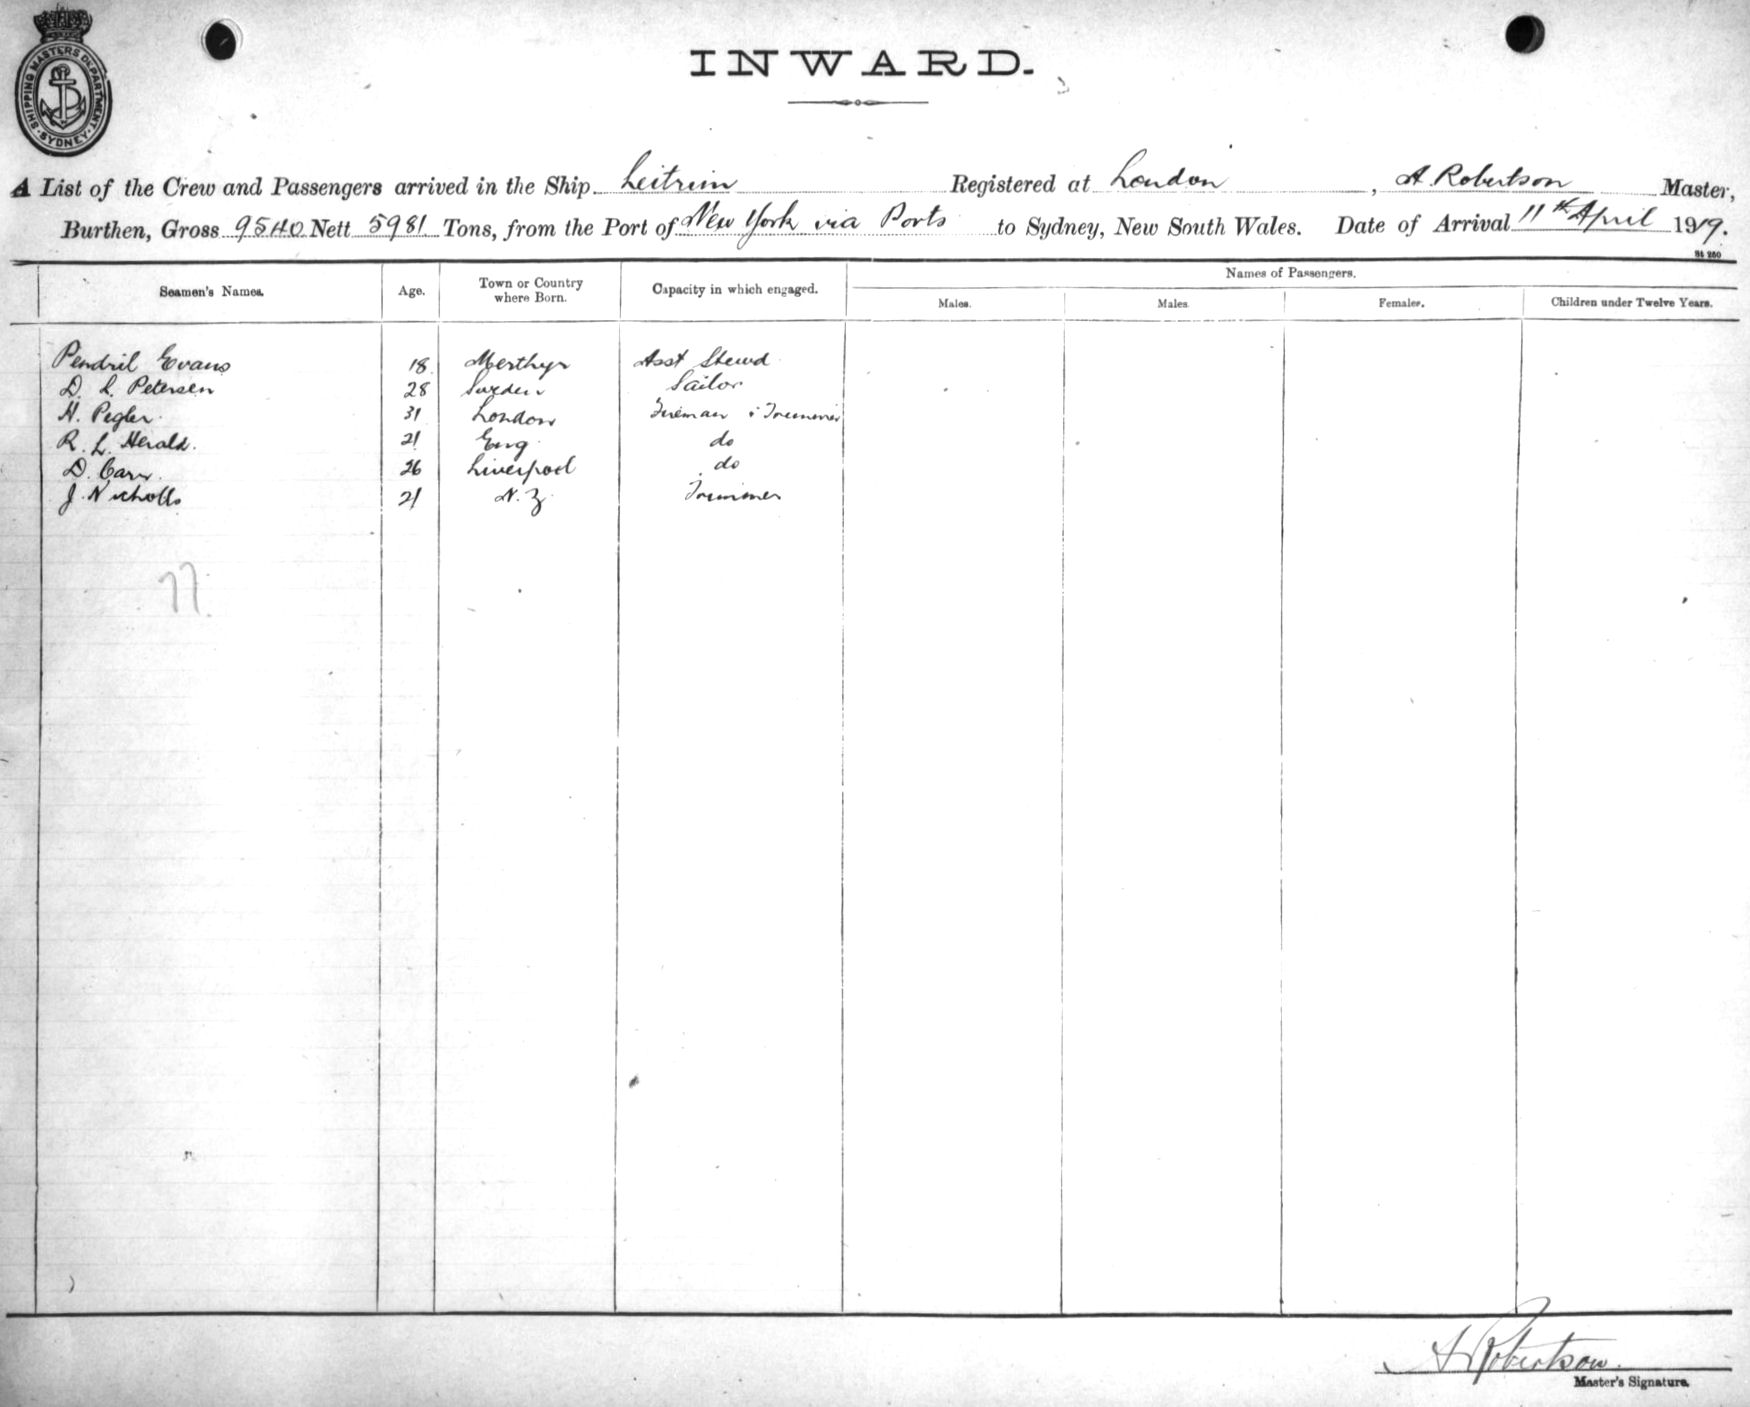 SHIPPING MASTERS DEPARTMENT
SYDNEY
INWARD.
A List of the Crew and Passengers arrived in the Ship Leitrim Registered at London, A. Robertson Master,
Burthen, Gross 9540 Nett 5981 Tons, from the Port of New York via Ports to Sydney, New South Wales. Date of Arrival 11th April 1919.
St 260
Names of Passengers.
Seamen's Names. Age. Town or Country where Born. Capacity in which engaged. Males. Males. Females. Children under Twelve Years.
Pendril Evans 18 Merthyr Asst Stewd
D. L. Petersen 28 Sweden Sailor
H. Pegler. 31 London Fireman & Trimmer
R. L. Herald. 21 Eng. do
D. Carr. 26 Liverpool do
J. Nicholls 21 N. Z Trimmer
77
A Robertson.
Master's Signature.